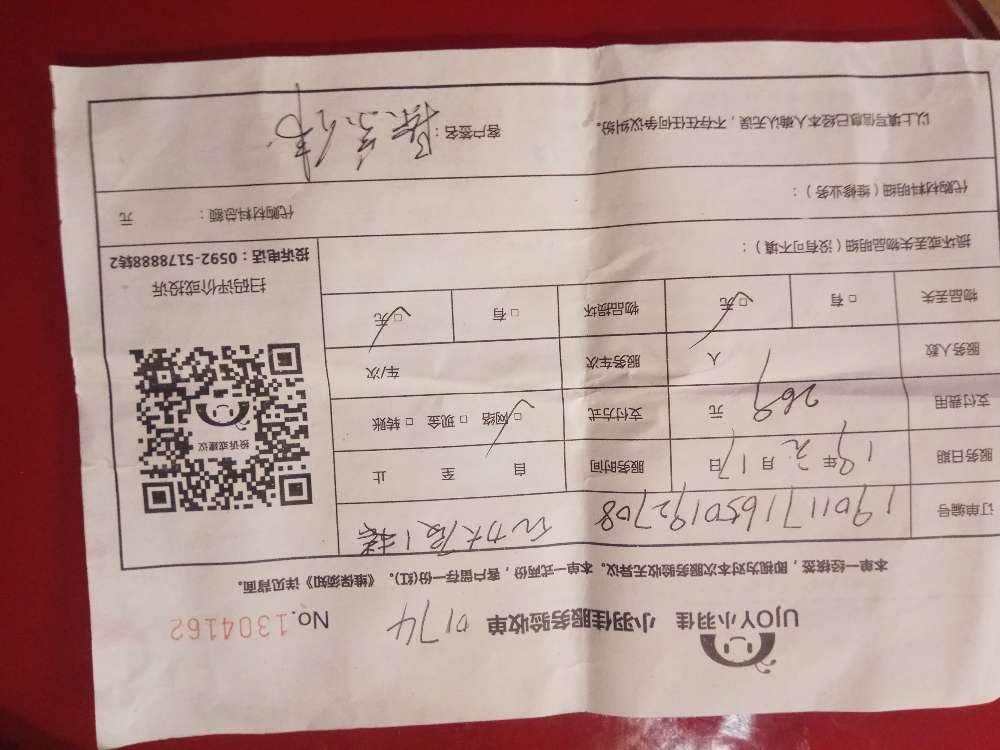 UJOY小羽佳 小羽佳服务验收单 0174 No.1304162
本单一经核签，即视为对本次服务验收无异议。本单一式两份，客户留存一份(红)。《维保须知》详见背面。
订单编号 1901171650192708
服务日期 19年 2月17日 服务时间 自 至 止
支付费用 269 元 支付方式 □网络 □现金 □转账
服务人数 1 人 服务车次 车/次
物品丢失 □有 □无 物品损坏 □有 □无
投诉或建议
扫码评价或投诉
投诉电话：0592-5178888转2
损坏或丢失物品明细（没有可不填）：
代购材料明细（维修业务）： 代购材料总额： 元
以上填写信息已经本人确认无误，不存在任何争议纠纷。 客户签名：